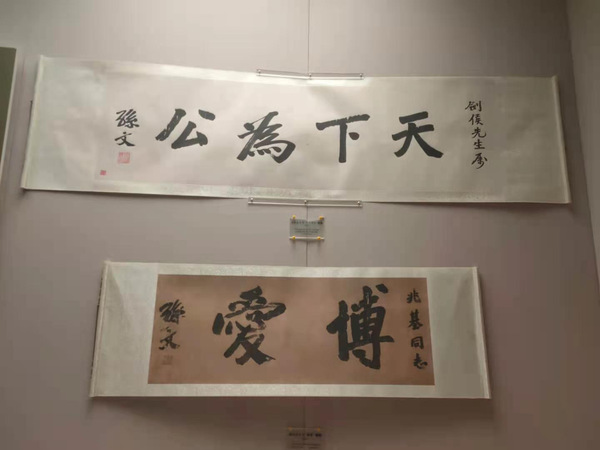 劍侯先生屬
天下為公
孫文
兆基同志
博愛
孫文